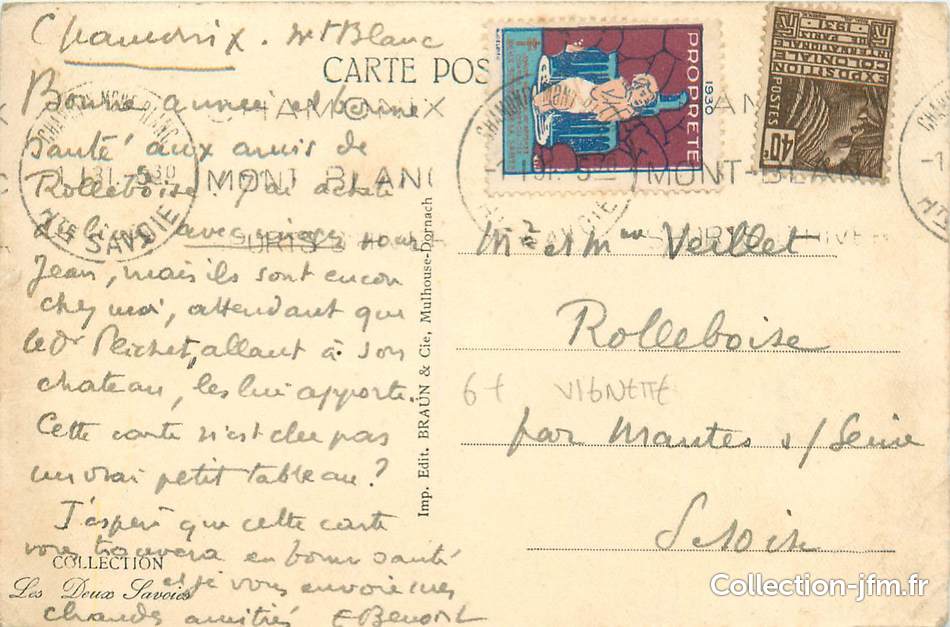 Chamonix. Mt Blanc
CARTE POS
Bonne année et bonne
santé aux amis de
Rolleboise. J'ai acheté
des livres avec images pour
Jean, mais ils sont encore
chez moi, attendant que
le Dr allant à son
chateau, les lui apporte.
Cette carte n'est elle pas
un vrai petit tableau?
J'espère que cette carte
vous trouvera en bonne santé
et je vous envoie mes
chaudes amitiés EBenoist
COLLECTION
Les Deux Savoies
Imp. Edit. BRAUN & Cie, Mulhouse-Dornach
PROPRETÉ
1930
EXPOSITION
COLONIALE
INTERNATIONALE
DE PARIS
1931
POSTES
40c
CHAMONIX
MONT BLANC
SPORTS
HTE SAVOIE
CHAMONIX MONT BLANC
MONT-BLAN
HIVER
Mr et Mme Veillet
Rolleboise
6+ VIGNETTE
par Mantes s/Seine
S et Oise
Collection-jfm.fr